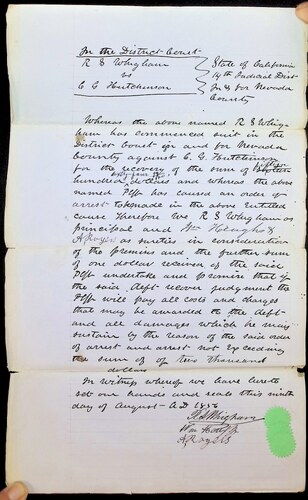 In the District Court
R S Whigham
vs
C G Hutchinson
State of California
14th Judicial Dist
In & for Nevada
County
Whereas the above named R S Whig-
ham has commenced suit in the
District Court in and for Nevada
County against C. G. Hutchinson
for the recovery of the sum of
hundred dollars and whereas the above
named Plff has caused an order of
arrest to be made in the above entitled
cause Therefore We R S Whigham as
principal and Wm Heugh &
A Rogers as sureties in consideration
of the premises and the further sum
of one dollar received of the said
Plff undertake and promise that if
the said Deft recover judgment the
Plff will pay all costs and charges
that may be awarded to the deft
and all damages which he may
sustain by the reason of the said order
of arrest and arrest not exceeding
the sum of of two thousand
dollars
In witness whereof we have hereto
set our hands and seals this ninth
day of August A D 1856
R S Whigham
Wm
A Rogers